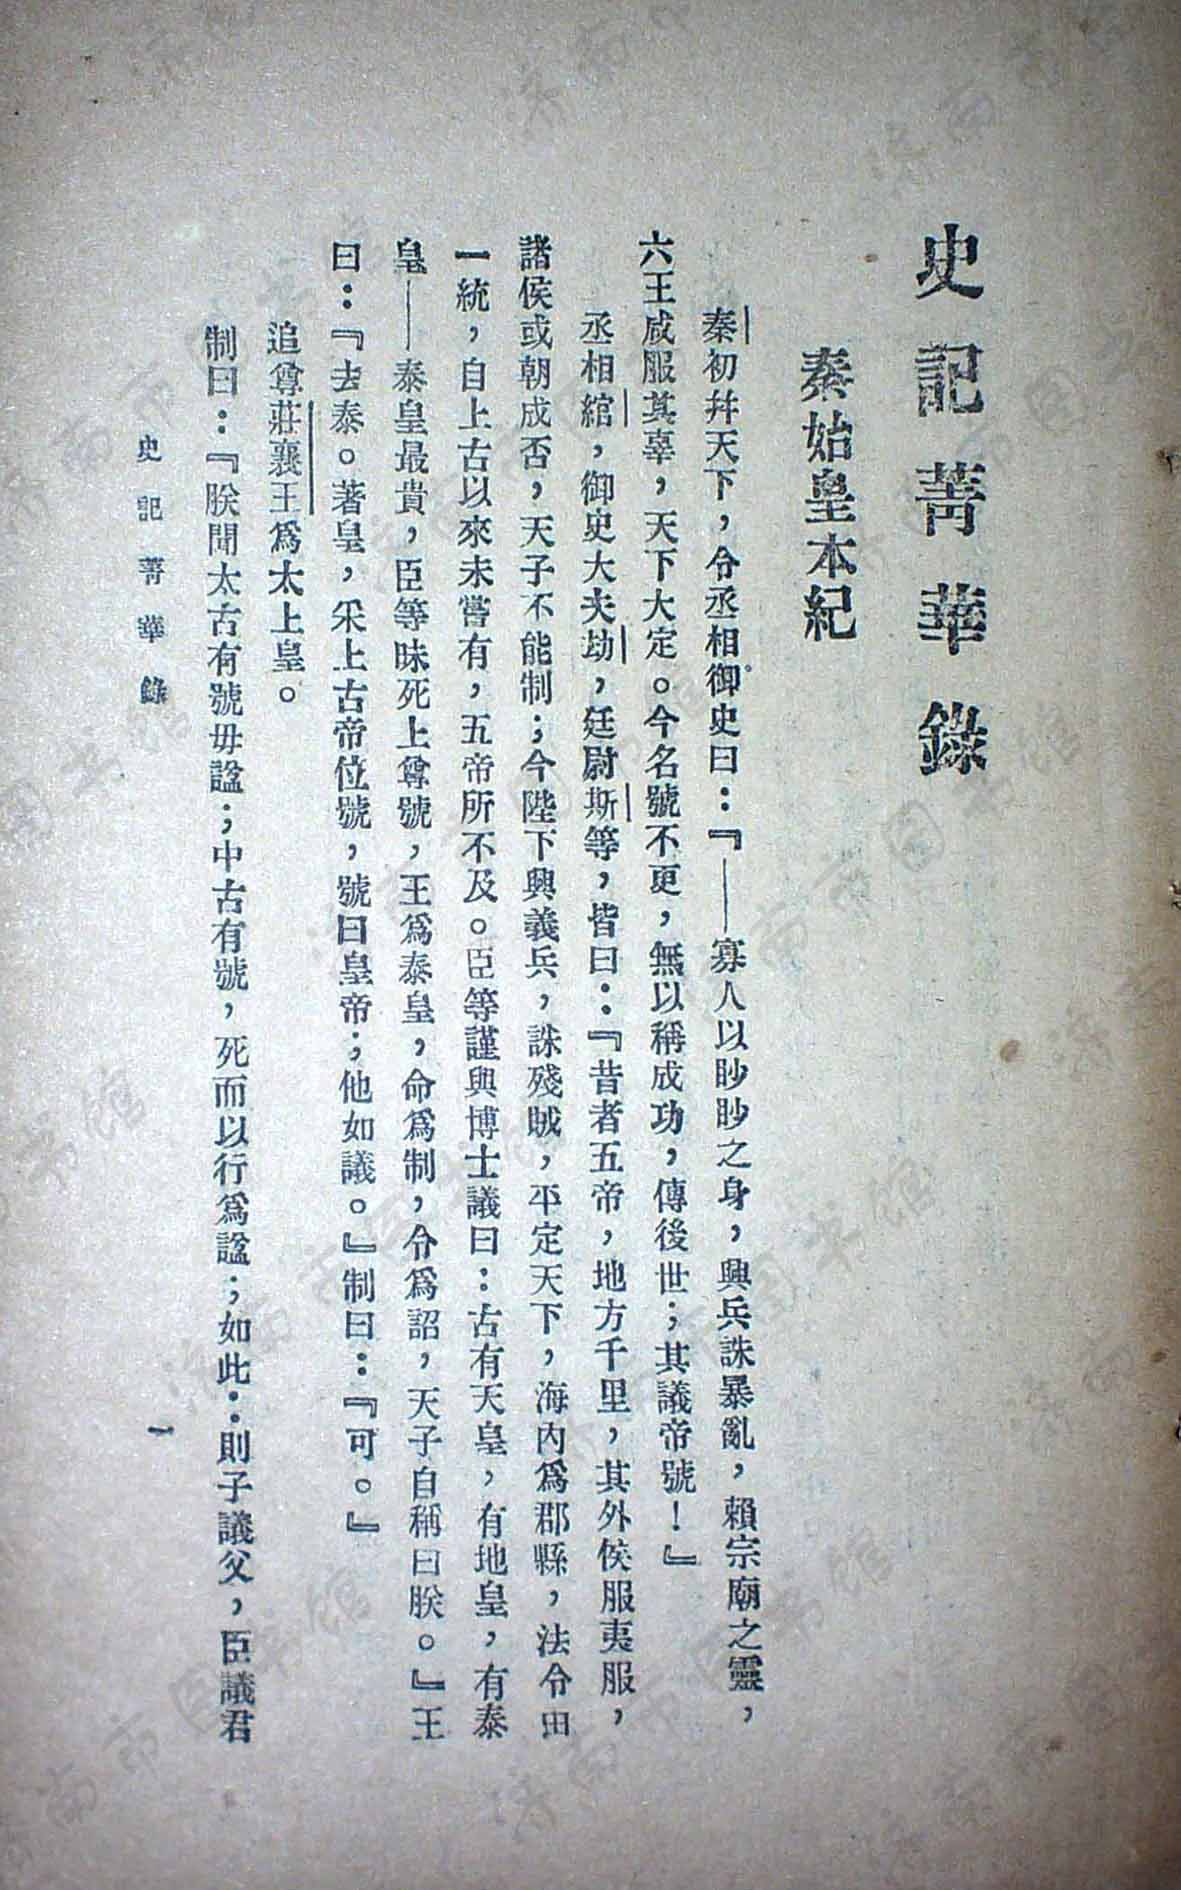 史記菁華錄
秦始皇本紀
秦初幷天下，令丞相御史曰：『——寡人以眇眇之身，興兵誅暴亂，賴宗廟之靈，
六王咸服其辜，天下大定。今名號不更，無以稱成功，傳後世；其議帝號！』
丞相綰，御史大夫劫，廷尉斯等，皆曰：『昔者五帝，地方千里，其外侯服夷服，
諸侯或朝成否，天子不能制；今陛下興義兵，誅殘賊，平定天下，海內爲郡縣，法令田
一統，自上古以來未嘗有，五帝所不及。臣等謹與博士議曰：古有天皇，有地皇，有泰
皇——泰皇最貴，臣等昧死上尊號，王爲泰皇，命爲制，令爲詔，天子自稱曰朕。』王
曰：『去泰。著皇，采上古帝位號，號曰皇帝；他如議。』制曰：『可。』
追尊莊襄王爲太上皇。
制曰：『朕聞太古有號毋諡；中古有號，死而以行爲諡；如此：則子議父，臣議君
史記菁華錄
一
济南市图书馆